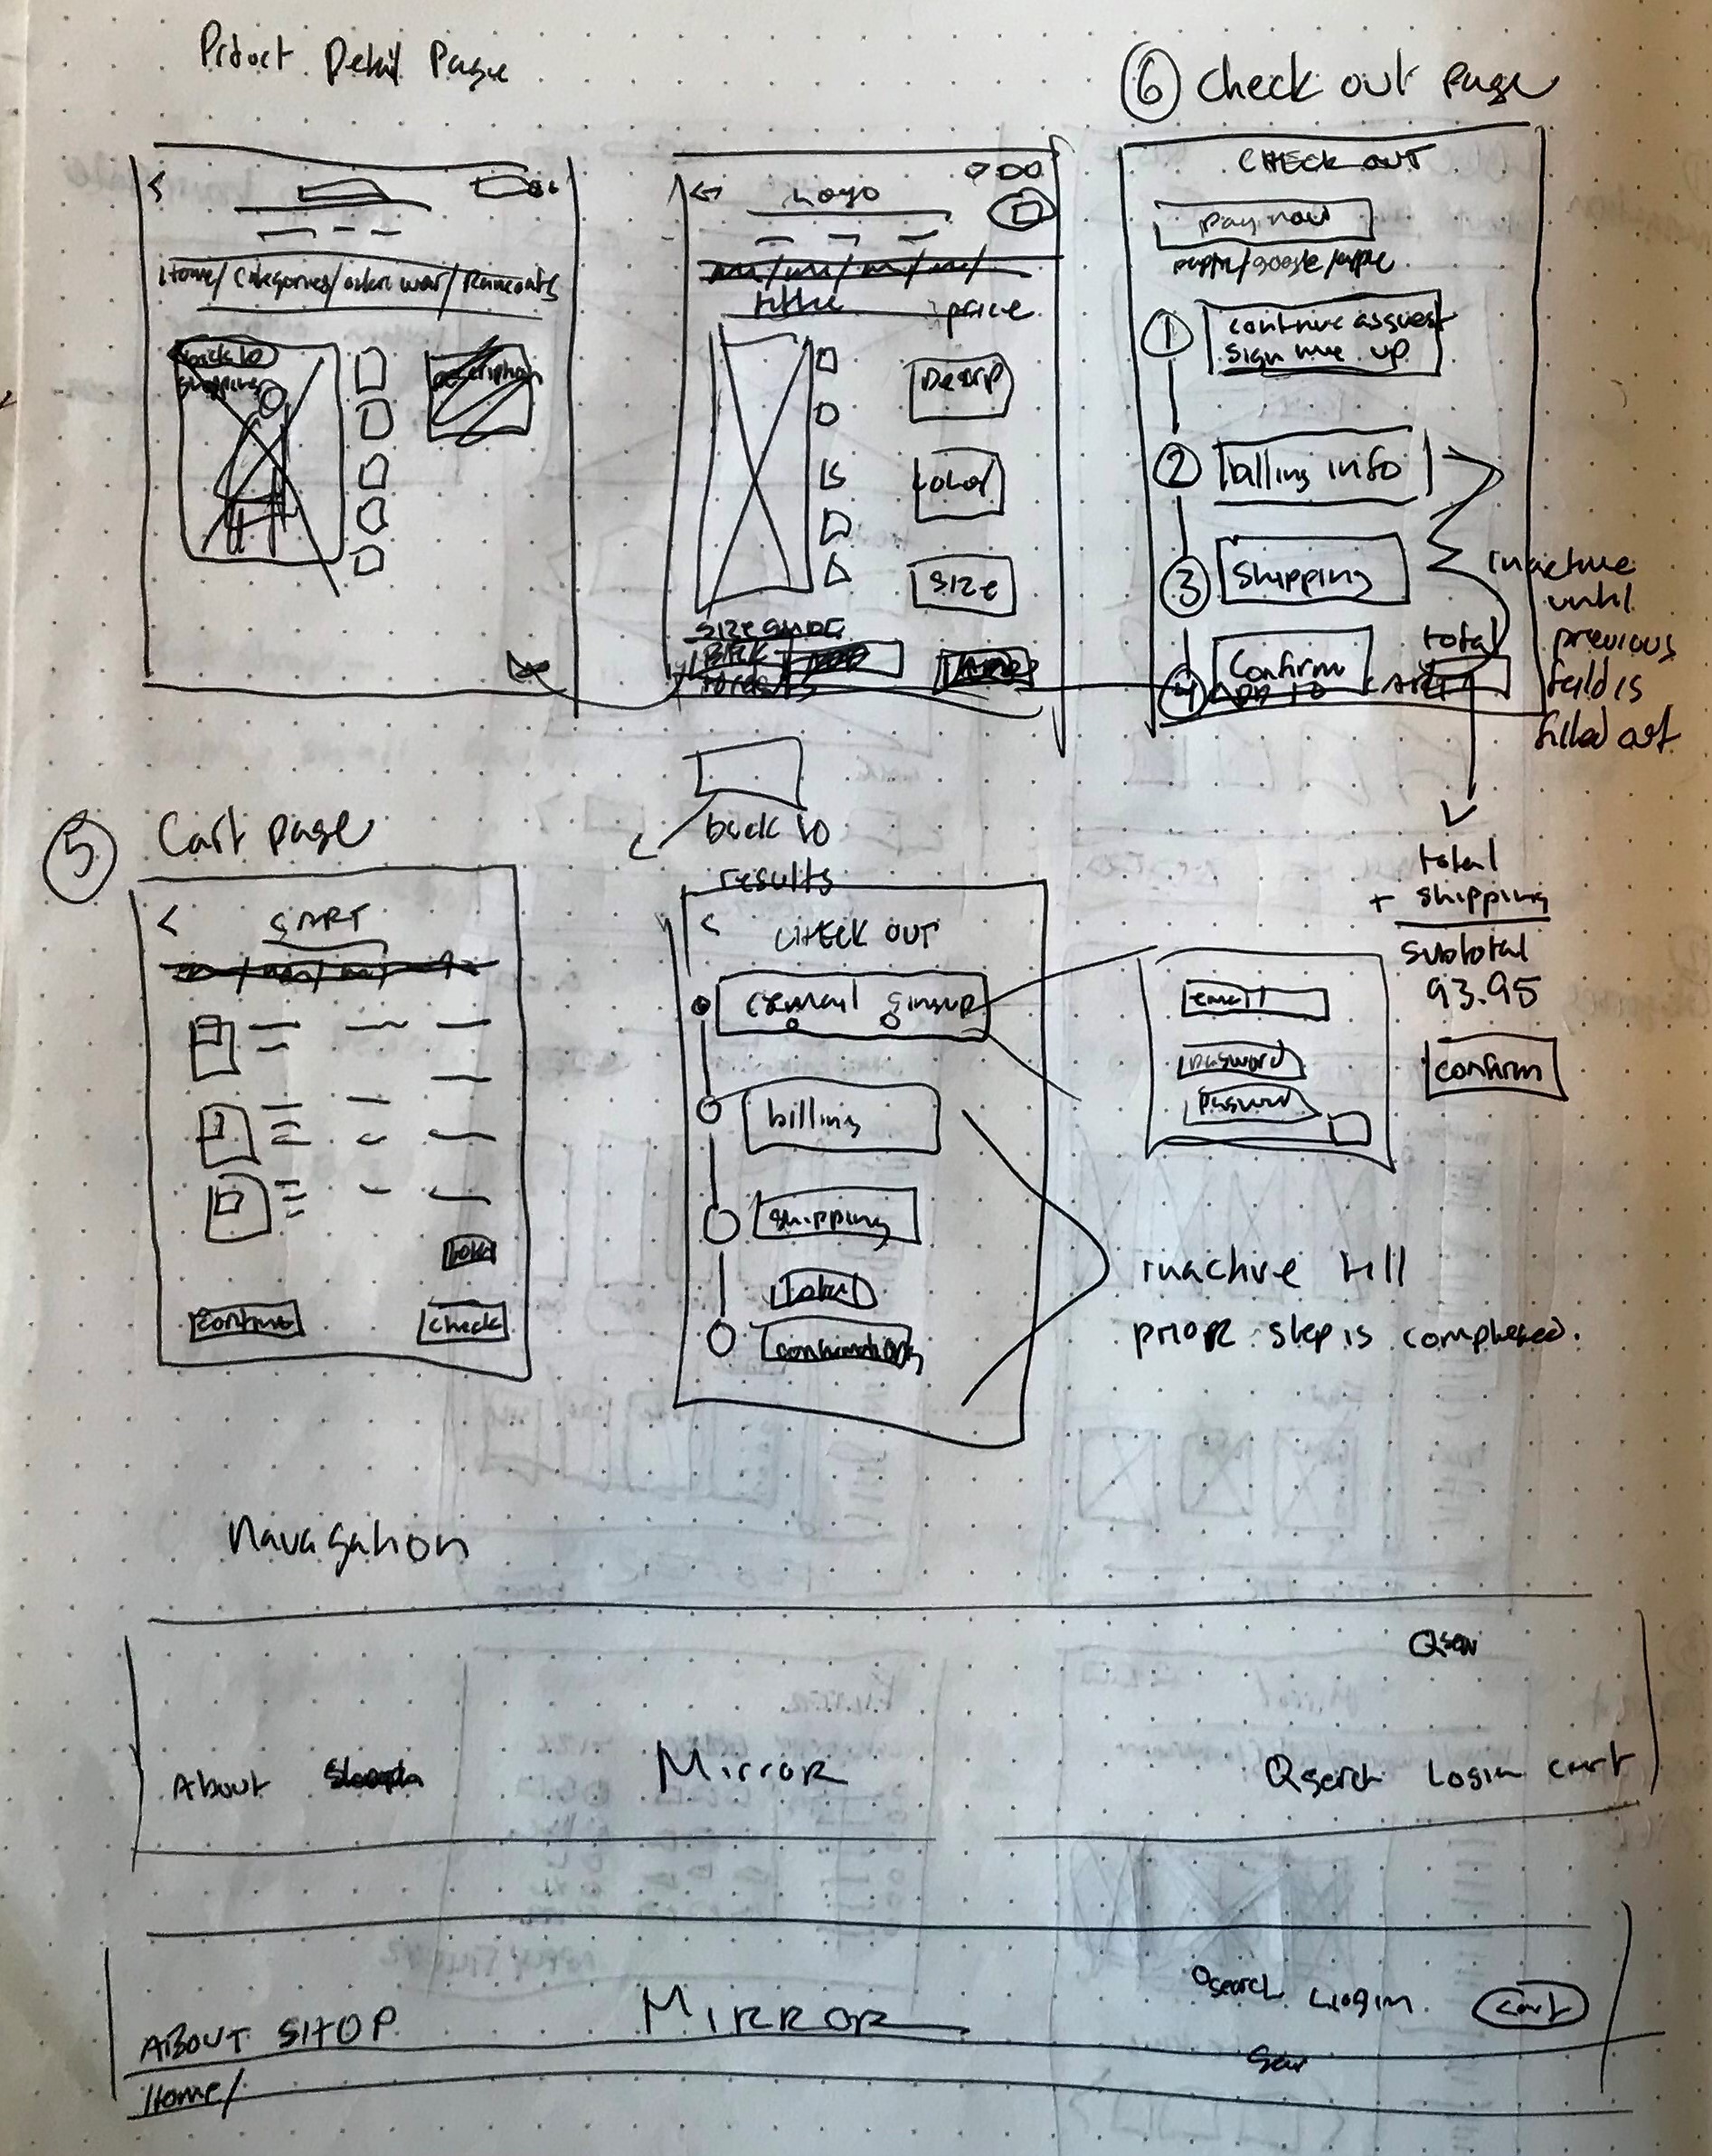 Prduct Detail Page
Home/ Categories/
back to
shopping
Logo
title
price
Descrip
Color
SIZE
SIZE GUIDE
Back
to results
back to
results
6 Check out page
CHECK OUT
Pay now
paypal/google/apple
1 continue as guest
sign me up
2 billing info
3 Shipping
4 Confirm
total
ADD TO CART
inactive
until
previous
feild is
filled out
total
+ shipping
subtotal
93.95
confirm
5 Cart page
CART
total
continue
check
CHECK OUT
billing
shipping
total
confirmation
email
password
password
inactive till
prior step is completed.
Navagation
About
Mirror
Search Login Cart
ABOUT SHOP
MIRROR
Search Login Cart
Home/